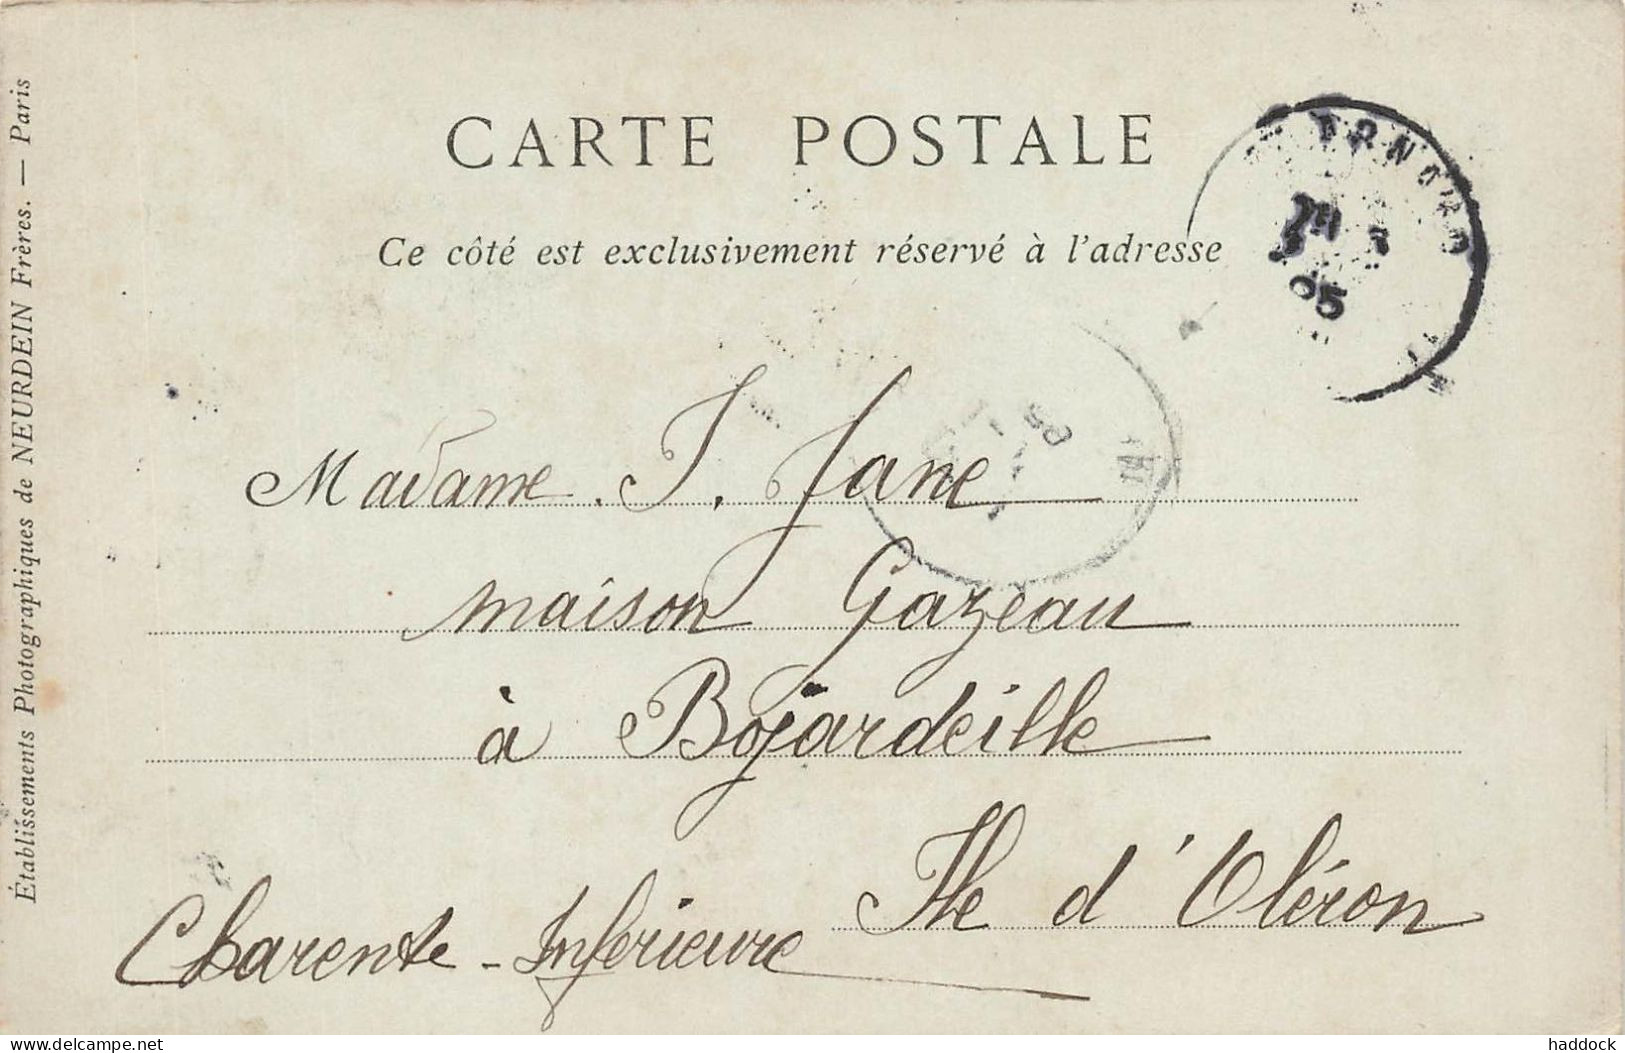 CARTE POSTALE
Ce côté est exclusivement réservé à l'adresse
Madame J. Jane
maison Gazeau
à Bojardeille
Ile d'Oléron
Charente-Inférieure
Établissements Photographiques de NEURDEIN Frères. — Paris
05
05
delcampe.net
haddock